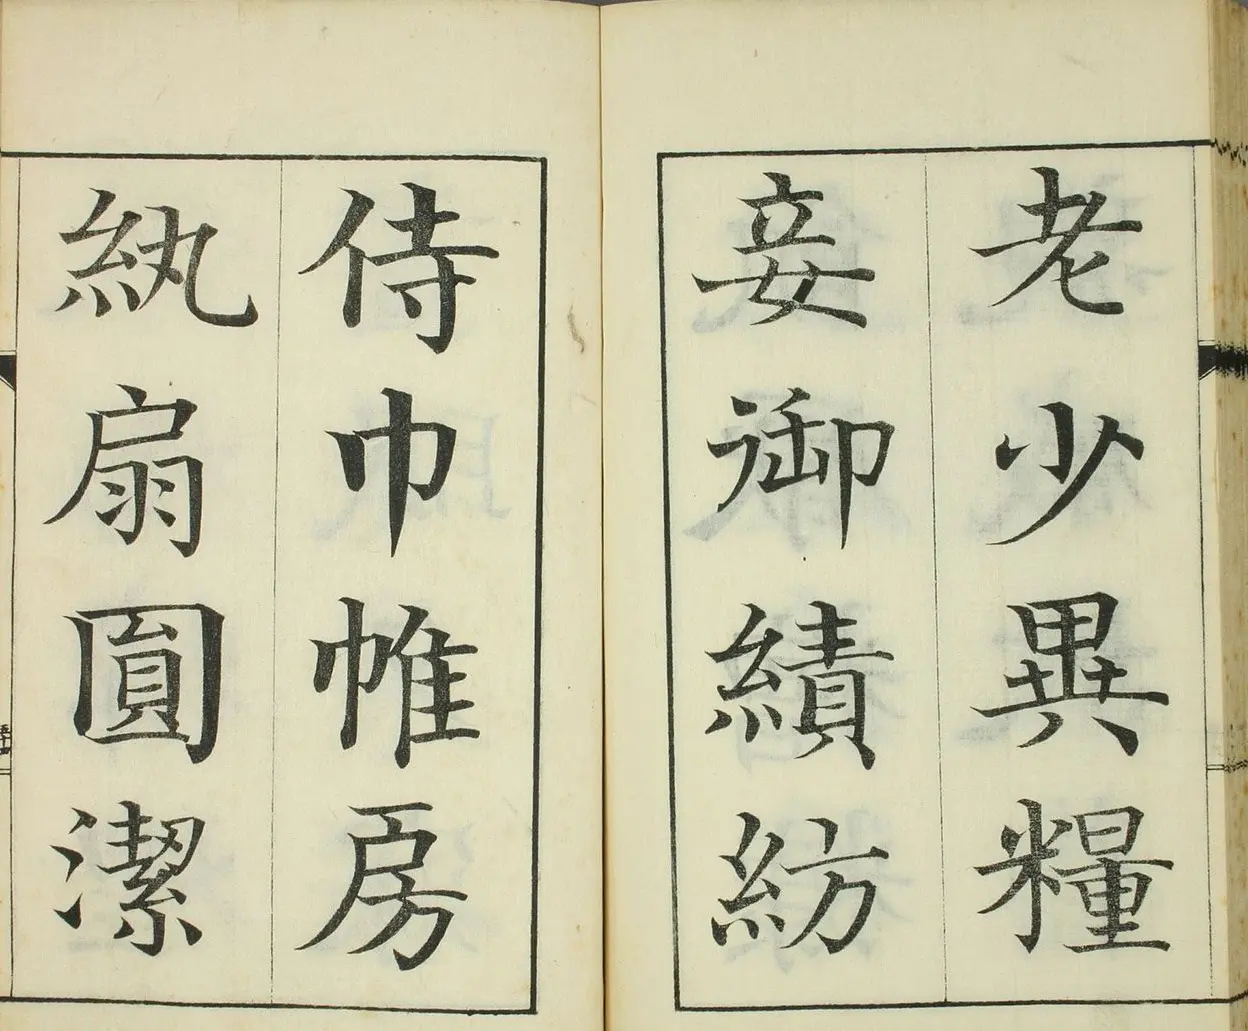 老少異糧
妾御績紡
侍巾帷房
紈扇圓潔